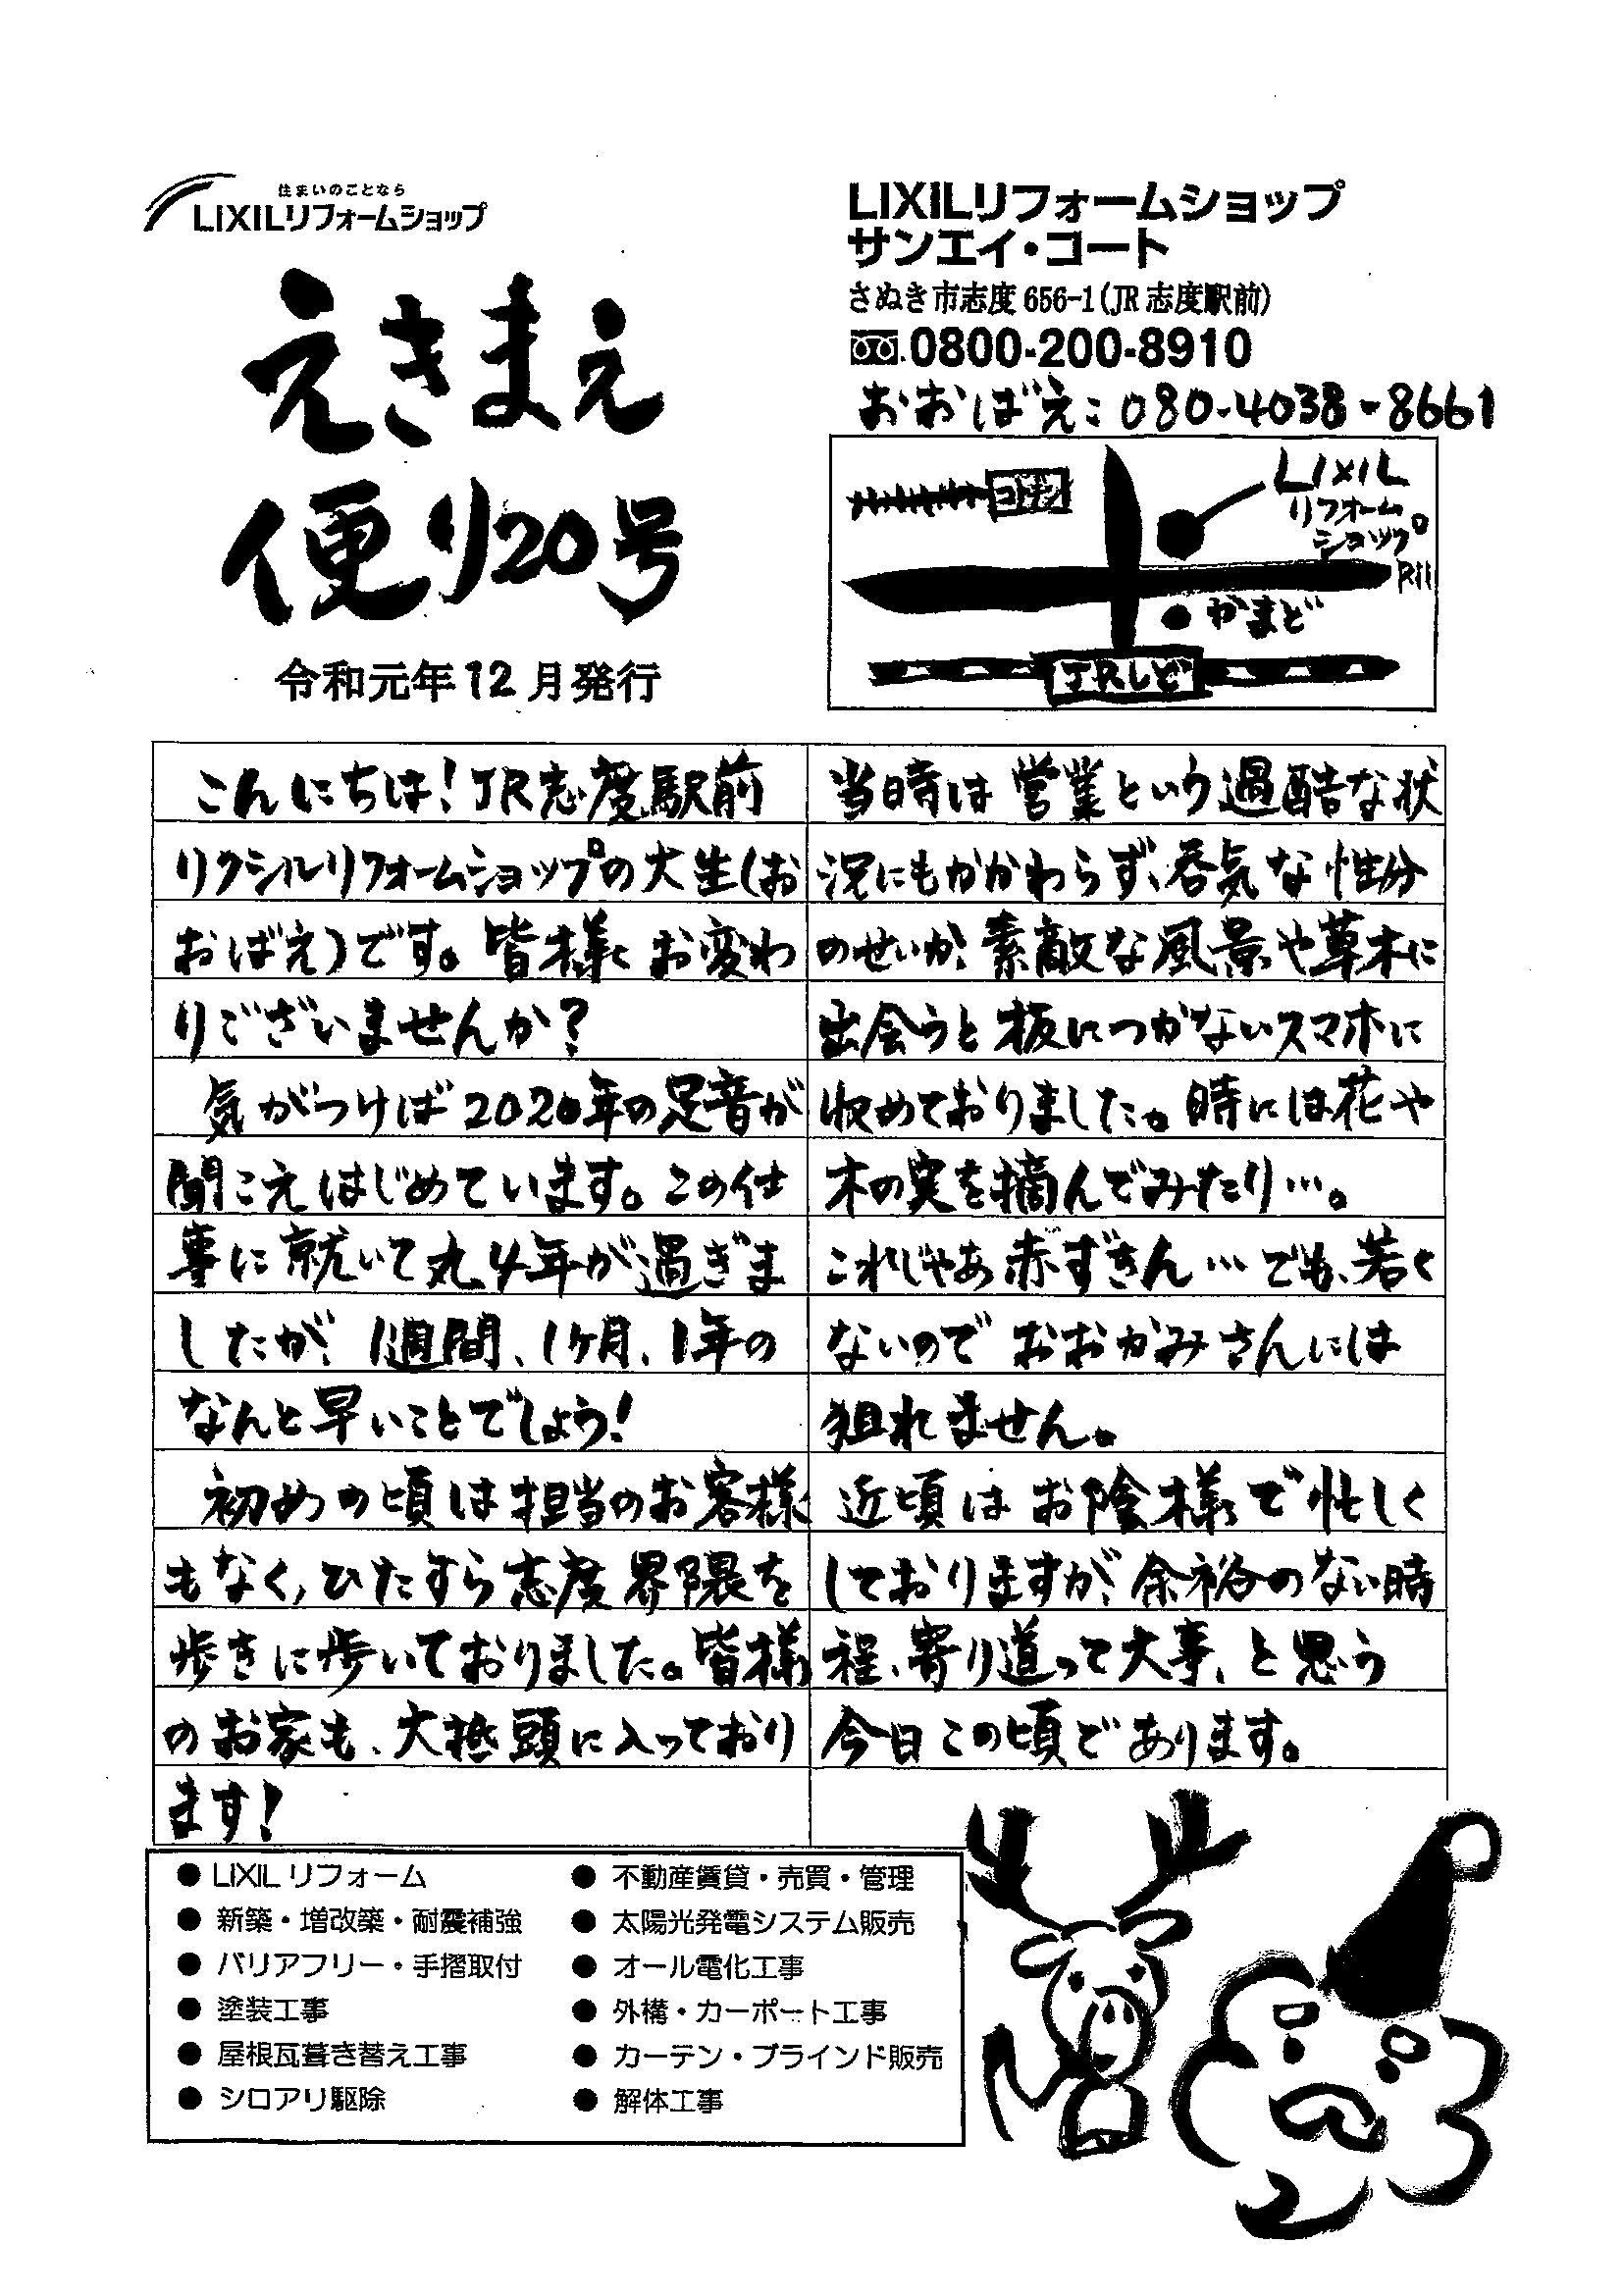 住まいのことなら
LIXILリフォームショップ
えきまえ
便り20号
令和元年12月発行
LIXILリフォームショップ
サンエイ・コート
さぬき市志度656-1(JR志度駅前)
0800-200-8910
おおばえ:080-4038-8661
コトデン
LIXIL
リフォーム
ショップ
R11
かまど
JRしど
こんにちは!JR志度駅前
リクシルリフォームショップの大生(お
おばえ)です。皆様、お変わ
りございませんか?
気がつけば2020年の足音が
聞こえはじめています。この仕
事に就いて丸4年が過ぎま
したが、1週間、1ヶ月、1年の
なんと早いことでしょう!
初めの頃は担当のお客様
もなく、ひたすら志度界隈を
歩きに歩いておりました。皆様
のお家も、大抵頭に入っており
ます!
当時は営業という過酷な状
況にもかかわらず、呑気な性分
のせいか、素敵な風景や草木に
出会うと板につかないスマホに
収めておりました。時には花や
木の実を摘んでみたり…。
これじゃあ赤ずきん…でも、若く
ないのでおおかみさんには
狙れません。
近頃はお陰様で忙しく
しておりますが、余裕のない時
程、寄り道って大事、と思う
今日この頃であります。
● LIXILリフォーム
● 新築・増改築・耐震補強
● バリアフリー・手摺取付
● 塗装工事
● 屋根瓦葺き替え工事
● シロアリ駆除
● 不動産賃貸・売買・管理
● 太陽光発電システム販売
● オール電化工事
● 外構・カーポート工事
● カーテン・ブラインド販売
● 解体工事